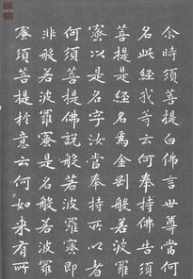 尒時須菩提白佛言世尊當何
名此經我等云何奉持佛告須
菩提是經名為金剛般若波羅
蜜以是名字汝當奉持所以者
何須菩提佛說般若波羅蜜即
非般若波羅蜜是名般若波羅
蜜須菩提於意云何如來有所